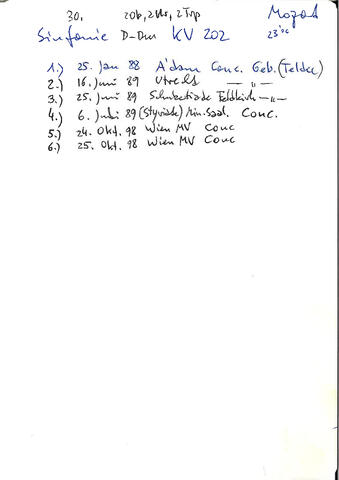 30. 2 Ob, 2 Hr, 2 Trp Mozart
Sinfonie D-Dur KV 202 23'
1.) 25. Jan 88 A'dam Conc. Geb. (Teldec)
2.) 16. Juni 89 Utrecht — " —
3.) 25. Juni 89 Schubertiade Feldkirch — " —
4.) 6. Juli 89 (Styriarte) Min. Saal. Conc.
5.) 24. Okt. 98 Wien MV Conc
6.) 25. Okt. 98 Wien MV Conc